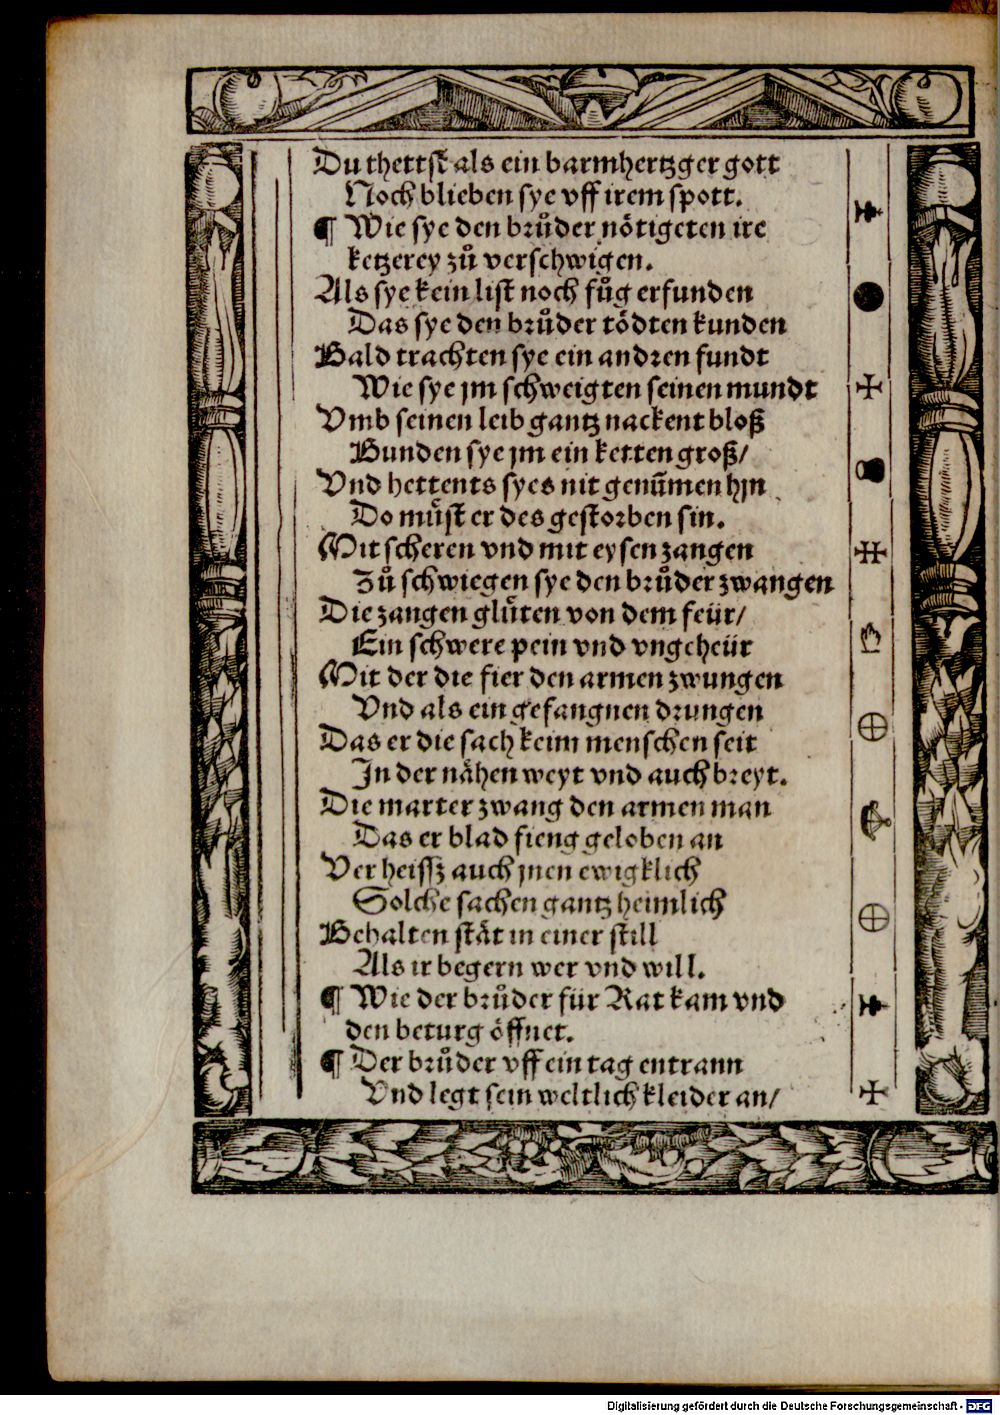 Du thettst als ein barmhertzger gott
Noch blieben sye vff irem spott.
¶ Wie sye den brůder nötigeten ire
ketzerey zů verschwigen.
Als sye kein list noch fůg erfunden
Das sye den brůder tödten kunden
Bald trachten sye ein andren fundt
Wie sye jm schweigten seinen mundt
Vmb seinen leib gantz nackent bloß
Bunden sye jm ein ketten groß/
Vnd hettents syes nit genūmen hjn
Do müst er des gestorben sin.
Mit scheren vnd mit eysen zangen
Zů schwiegen sye den brůder zwangen
Die zangen glüten von dem feür/
Ein schwere pein vnd vngeheür
Mit der die fier den armen zwungen
Vnd als ein gefangnen drungen
Das er die sach keim menschen seit
In der nähen weyt vnd auch breyt.
Die marter zwang den armen man
Das er blad fieng geloben an
Ver heissz auch jnen ewigklich
Solche sachen gantz heimlich
Behalten stät in einer still
Als ir begern wer vnd will.
¶ Wie der brůder für Rat kam vnd
den beturg öffnet.
¶ Der brůder vff ein tag entrann
Vnd legt sein weltlich kleider an/
Digitalisierung gefördert durch die Deutsche Forschungsgemeinschaft - DFG